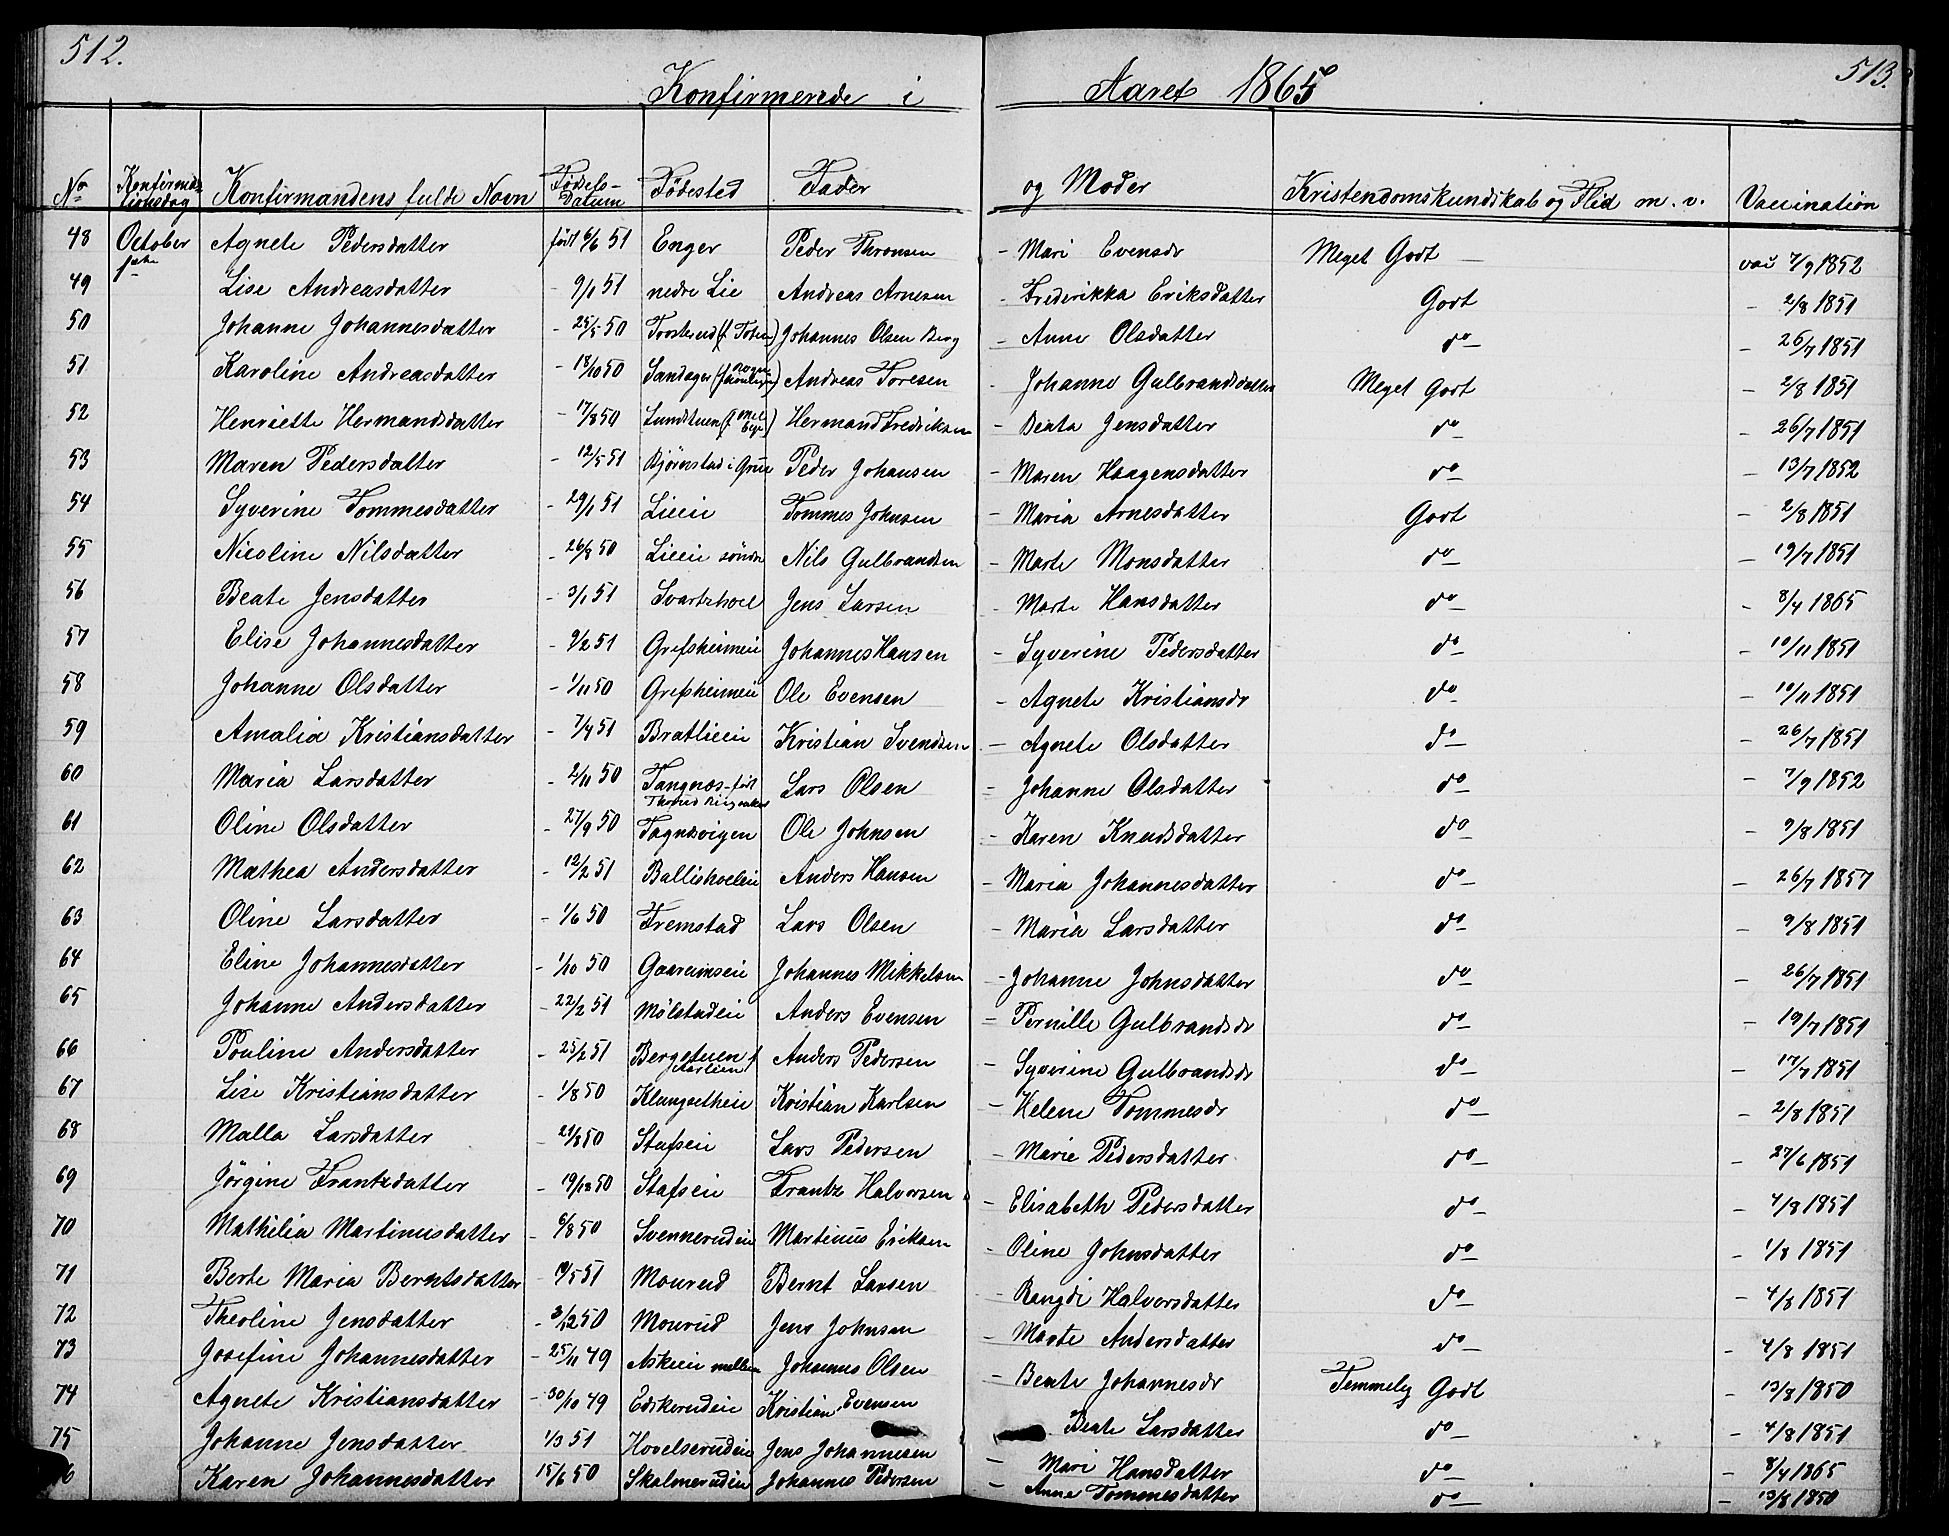 512.
513.
Konfirmerede i Aaret 1865
No Konfirmationsdag Konfirmandens fulde Navn Fødsels-Datum Fødested Fader og Moder Kristendomskundskab og Flid m. v. Vaccination
48 October 1ste Agnete Pedersdatter født 6/6 51 Enger Peder Thronsen - Mari Evensdr Meget Godt vac 7/9 1852
49 Lise Andreasdatter - 9/1 51 nedre Lie Andreas Arnesen - Frederikka Eriksdatter Godt - 2/8 1851
50 Johanne Johannesdatter - 25/5 50 (f. Toten) Johannes Olsen Berg - Anne Olsdatter do - 26/7 1851
51 Karoline Andreasdatter - 18/10 50 Sandager Andreas Toresen - Johanne Gulbrandsdatter Meget Godt - 2/8 1851
52 Henriette Hermandsdatter - 17/8 50 Hermand Fredriksen - Beata Jensdatter do - 26/7 1851
53 Maren Pedersdatter - 12/5 51 Bjørnstad i Grue Peder Johansen - Maren Haagensdatter do - 13/7 1852
54 Syverine Tommesdatter - 29/1 51 Lieeie Tommes Johnsen - Maria Arnesdatter Godt - 2/8 1851
55 Nicoline Nilsdatter - 26/8 50 Lieeie søndre Nils Gulbrandsen - Marte Monsdatter do - 19/7 1851
56 Beate Jensdatter - 3/1 51 Svartshoel Jens Larsen - Marte Hansdatter do - 8/4 1865
57 Elise Johannesdatter - 9/2 51 Grefsheimeie Johannes Hansen - Syverine Pedersdatter do - 10/11 1851
58 Johanne Olsdatter - 1/11 50 Grefsheimeie Ole Evensen - Agnete Kristiansdr do - 10/11 1851
59 Amalia Kristiansdatter - 7/4 51 Bratlieeie Kristian Svendsen - Agnete Olsdatter do - 26/7 1851
60 Maria Larsdatter - 2/11 50 Tangnæs - født Ringsaker Lars Olsen - Johanne Olsdatter do - 7/9 1852
61 Oline Olsdatter - 27/9 50 Tagnsvigen Ole Johnsen - Karen Knudsdatter do - 9/8 1851
62 Mathea Andersdatter - 12/2 51 Ballishoeleie Anders Hansen - Maria Johannesdatter do - 26/7 1857
63 Oline Larsdatter - 1/6 50 Fremstad Lars Olsen - Maria Larsdatter do - 9/8 1851
64 Eline Johannesdatter - 1/10 50 Gaarumseie Johannes Mikkelsen - Johanne Johnsdatter do - 26/7 1851
65 Johanne Andersdatter - 22/2 51 Mølstadeie Anders Evensen - Pernille Gulbrandsdr do - 19/7 1851
66 Pouline Andersdatter - 25/2 51 Bergetuen Anders Pedersen - Syverine Gulbrandsdr do - 17/7 1851
67 Lise Kristiansdatter - 1/8 50 Klungsetheie Kristian Karlsen - Helene Tommesdr do - 2/8 1851
68 Malla Larsdatter - 21/8 50 Stafseie Lars Pedersen - Marie Pedersdatter do - 27/6 1851
69 Jörgine Frantzdatter - 19/12 50 Stafseie Frantz Halvorsen - Elisabeth Pedersdatter do - 4/8 1851
70 Mathilia Martinusdatter - 6/8 50 Svennerudeie Martinus Eriksen - Oline Johnsdatter do - 1/8 1851
71 Berte Maria Berntsdatter - 19/5 51 Mourud Bernt Larsen - Rangdi Halvorsdatter do - 4/8 1851
72 Theoline Jensdatter - 3/12 50 Mourud Jens Johnsen - Marte Andersdatter do - 4/8 1851
73 Josefine Johannesdatter - 25/11 49 Askeie mellem Johannes Olsen - Beate Johannesdr Temmelig Godt - 13/8 1850
74 Agnete Kristiansdatter - 30/10 49 Edskerudeie Kristian Evensen Beate Larsdatter do - 4/8 1851
75 Johanne Jensdatter 1/3 51 Hovelserudeie Jens Johannesen - Mari Hansdatter do - 8/4 1865
6 Karen Johannesdatter 15/6 50 Skalmerudeie Johannes Pedersen - Anne Tommesdatter do - 13/8 1850